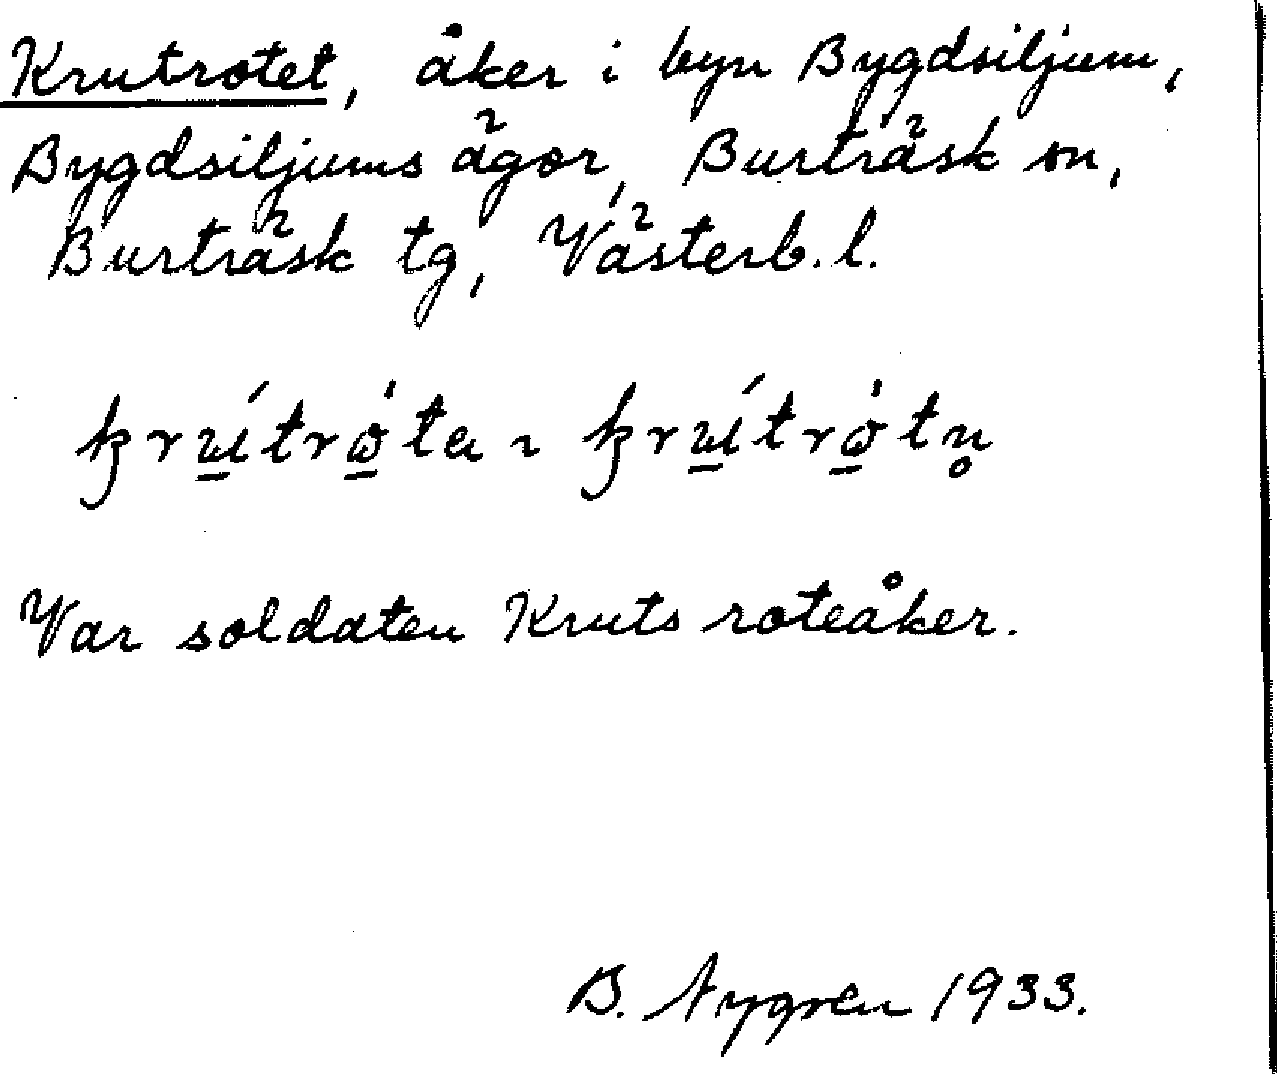 Krutrotet, åker i byn Bygdsiljum,
Bygdsiljums ägor, Burträsk sn,
Burträsk tg, Västerb. l.
Var soldaten Kruts roteåker.
B. Nygren 1933.